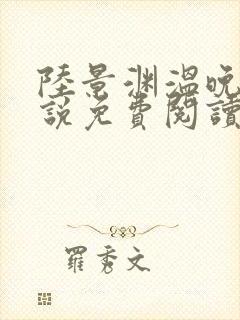 陸景渊溫晚
說免費閱讀
羅秀文